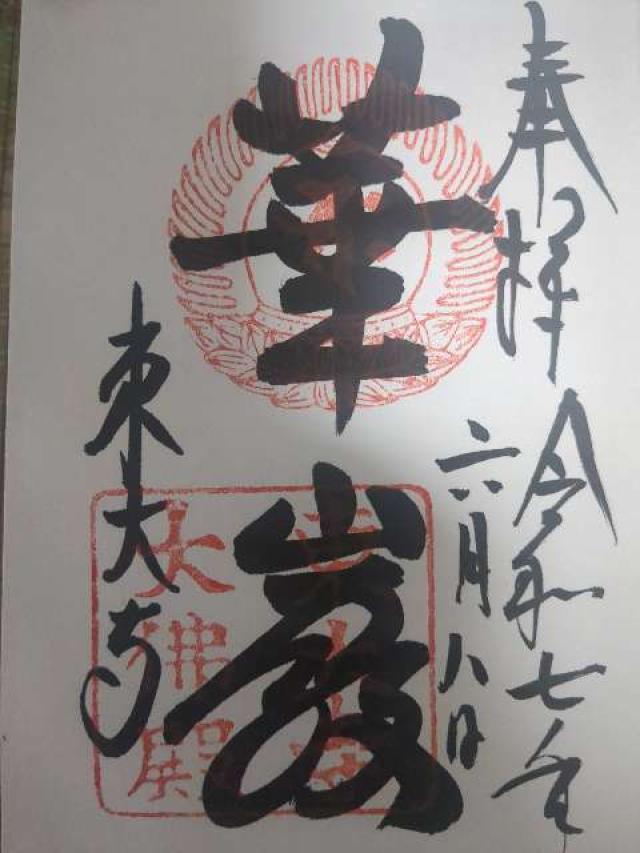 奉拝 令和七年
六月八日
華嚴
東大寺
東大寺
大佛殿